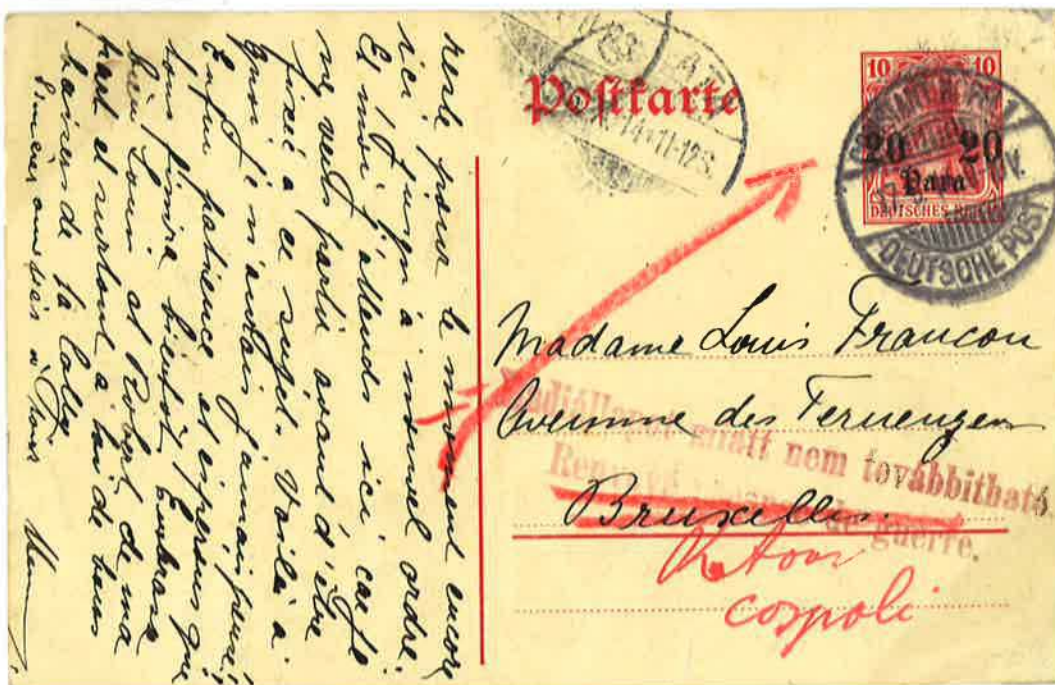 Postkarte
10 10
20 20
Para
DEUTSCHES REICH
CONSTANTINOPEL 1
DEUTSCHE POST
83
14 11-12
Madame Louis Francon
Avenue des
Bruxelles.
Hadiállapot miatt nem továbbítható
Renvoyé de guerre.
Retour
cospoli
reste pour le moment encore
ici jusqu'à nouvel ordre.
Et moi j'attends ici car je
ne veux partir avant d'être
fixée à ce sujet. Voilà à
quoi je n'aurais jamais pensé;
Enfin patience et espérons que
tout finira bientôt. Embrasse
bien Louis et Robert de ma
part et surtout à toi de bons
baisers de ta